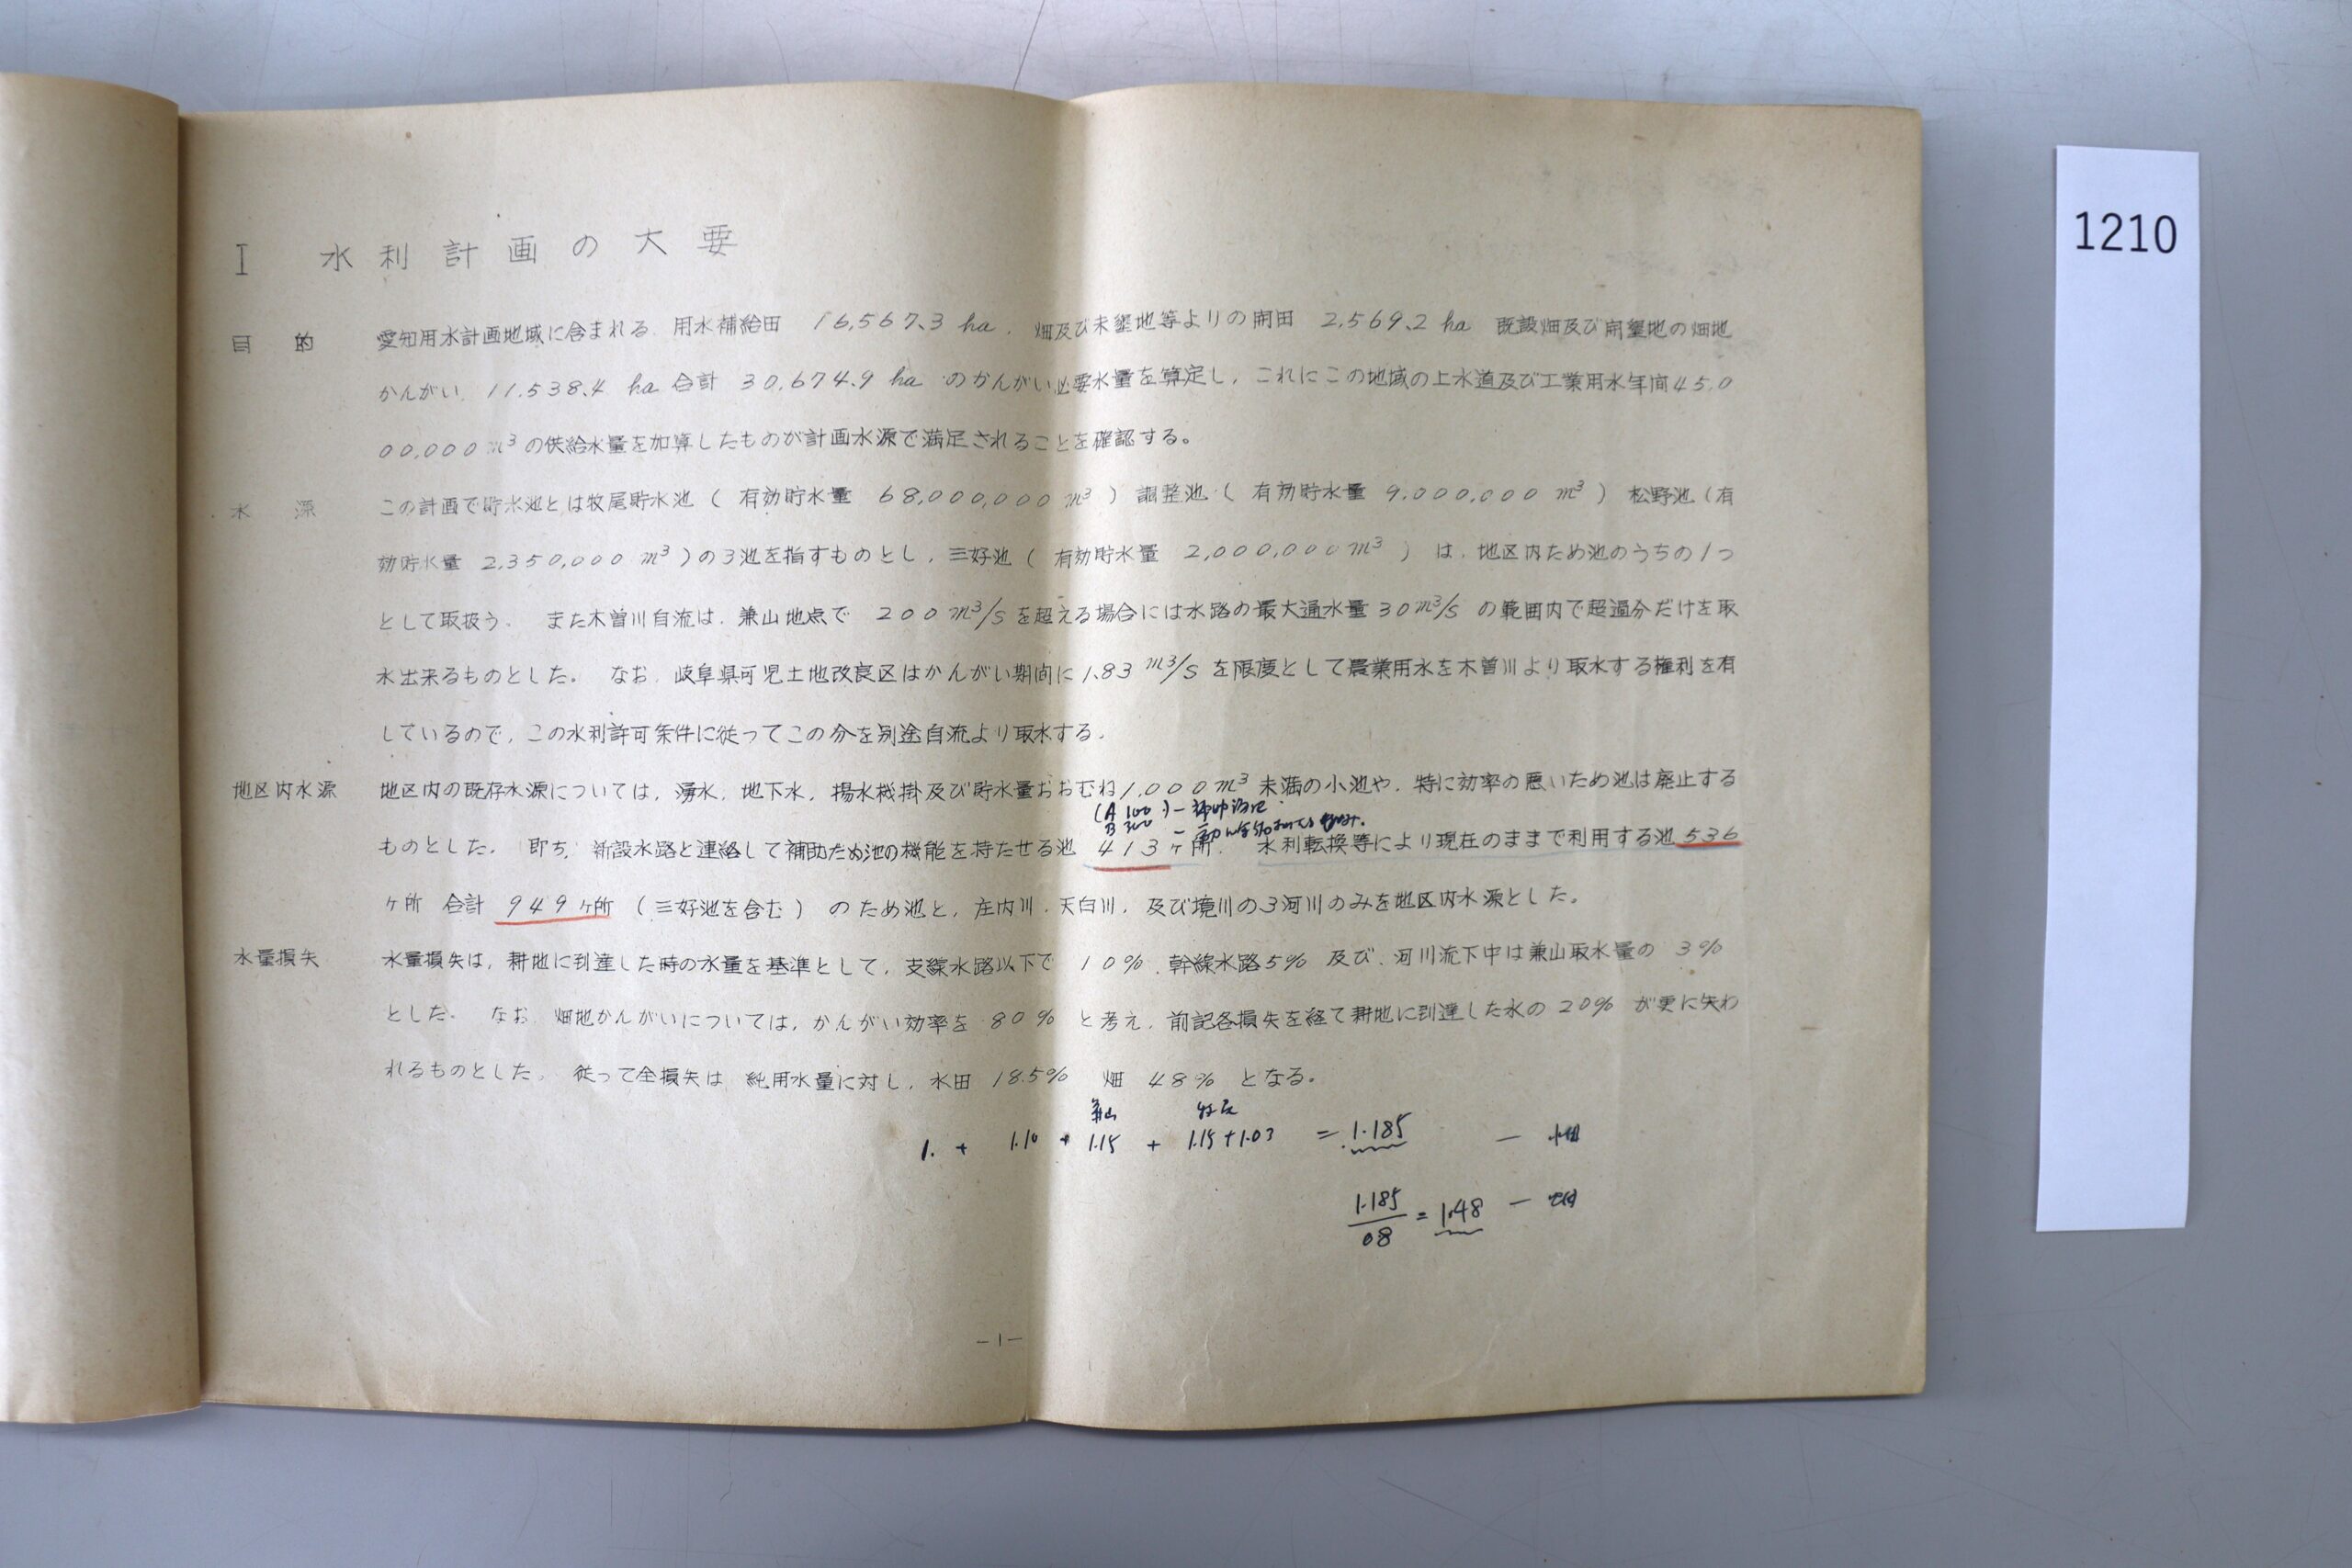 I 水利計画の大要
目的 愛知用水計画地域に含まれる 用水補給田 16,567.3 ha. 畑及び未墾地等よりの開田 2,569.2 ha 既設畑及び開墾地の畑地
かんがい 11,538.4 ha 合計 30,674.9 ha のかんがい必要水量を算定し、これにこの地域の上水道及び工業用水年間45,0
00,000m³の供給水量を加算したものが計画水源で満足されることを確認する。
水源 この計画で貯水池とは牧尾貯水池(有効貯水量 68,000,000 m³)調整池(有効貯水量 9,000,000 m³)松野池(有
効貯水量 2,350,000 m³)の3池を指すものとし、三好池(有効貯水量 2,000,000m³)は、地区内ため池のうちの1つ
として取扱う。 また木曽川自流は、兼山地点で 200m³/Sを超える場合には水路の最大通水量30m³/Sの範囲内で超過分だけを取
水出来るものとした。 なお、岐阜県可児土地改良区はかんがい期間に1.83 m³/Sを限度として農業用水を木曽川より取水する権利を有
しているので、この水利許可条件に従ってこの分を別途自流より取水する。
地区内水源 地区内の既存水源については、湧水、地下水、揚水機掛及び貯水量おおむね1,000m³未満の小池や、特に効率の悪いため池は廃止する
(A 100
B 300
ものとした。 即ち、新設水路と連絡して補助ため池の機能を持たせる池 413ヶ所、 水利転換等により現在のままで利用する池536
ヶ所 合計 949ヶ所(三好池を含む)のため池と、庄内川、天白川、及び境川の3河川のみを地区内水源とした。
水量損失 水量損失は、耕地に到達した時の水量を基準として、支線水路以下で 10%、幹線水路5% 及び、河川流下中は兼山取水量の 3%
とした。 なお 畑地かんがいについては、かんがい効率を 80% と考え、前記各損失を経て耕地に到達した水の20% が更に失わ
れるものとした。 従って全損失は 純用水量に対し、水田 18.5% 畑 48% となる。
兼山
1. + 1.10 + 1.15 + 1.15+1.03 = 1.185 —
1.185
/08 = 1.48 —
—1—
1210